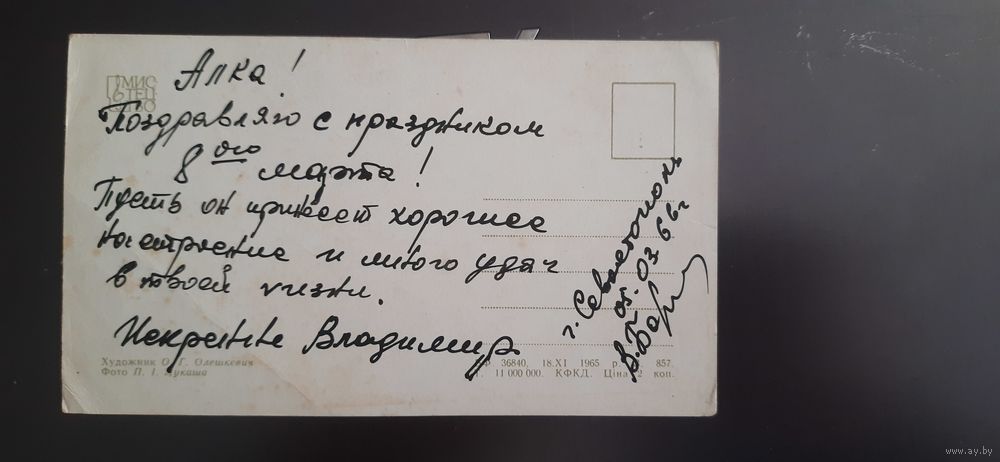 Алка!
Поздравляю с праздником
8ого марта!
Пусть он принесет хорошее
настроение и много удач
в твоей жизни.
Искренне Владимир
г. Севастополь
05.03.66г
МИС
ТЕЦ
ВО
Художник О. Г. Олешкевич
Фото П. І. Лукаша
36840, 18.XI 1965 р. 857.
11 000 000. КФКД. Ціна 2 коп.
www.ay.by